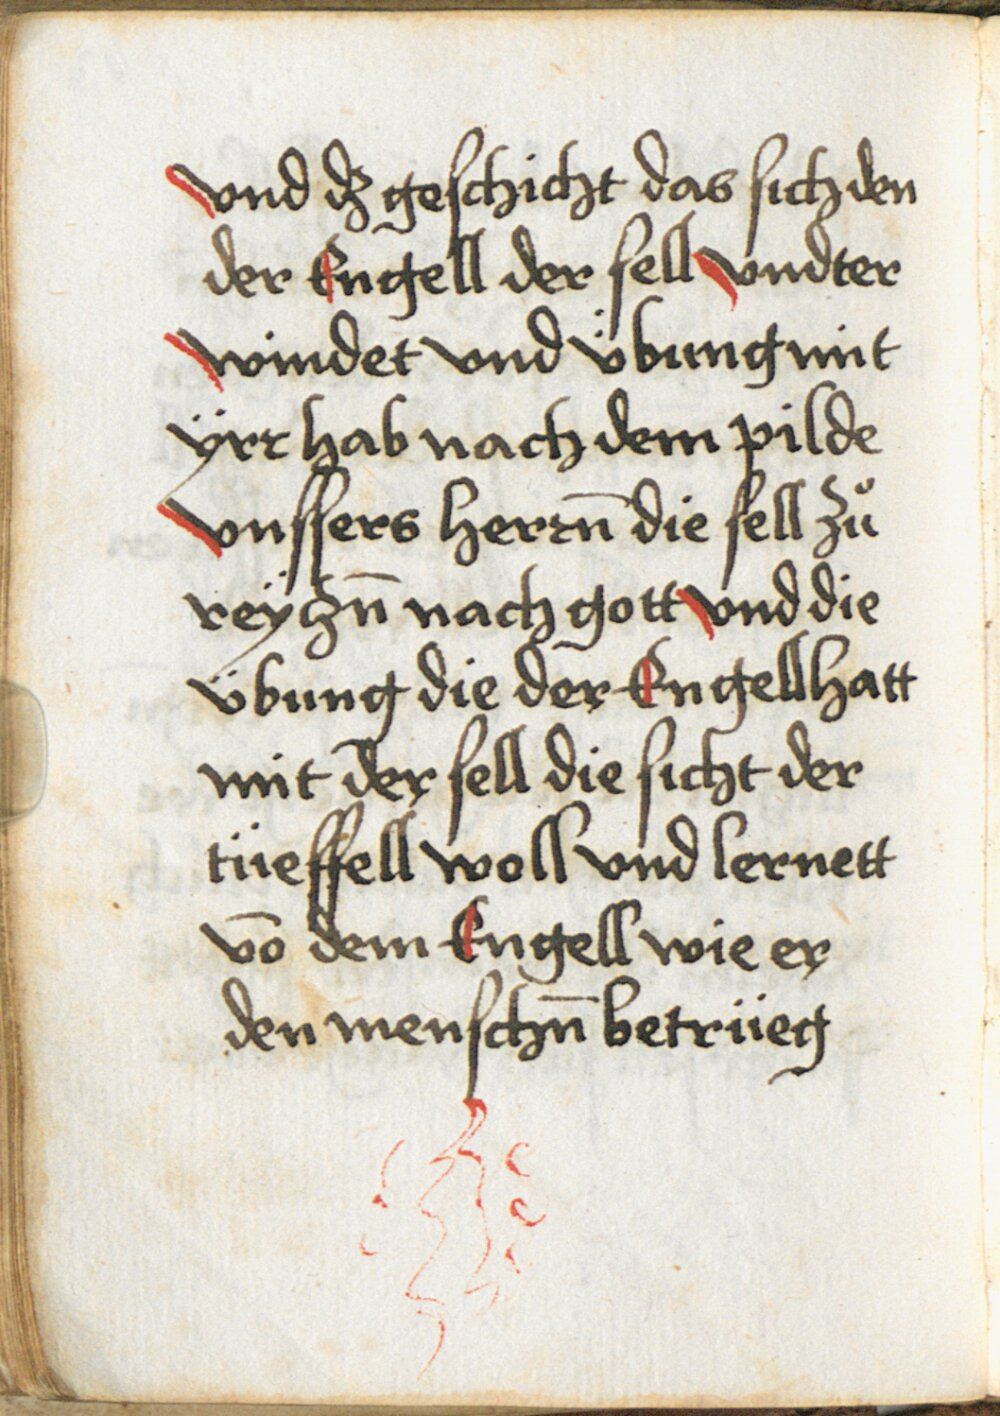 vnd dʒ geschicht das sich den
der Engell der sell vndter
windet vnd übung mit
ÿrr hab nach dem pilde
vnssers herrn̄ die sell zů
reÿczn̄ nach gott vnd die
übung die der Engell hatt
mit der sell die sicht der
tüeffell woll vnd lernett
vō dem Engell wie er
den menschn̄ betrüeg